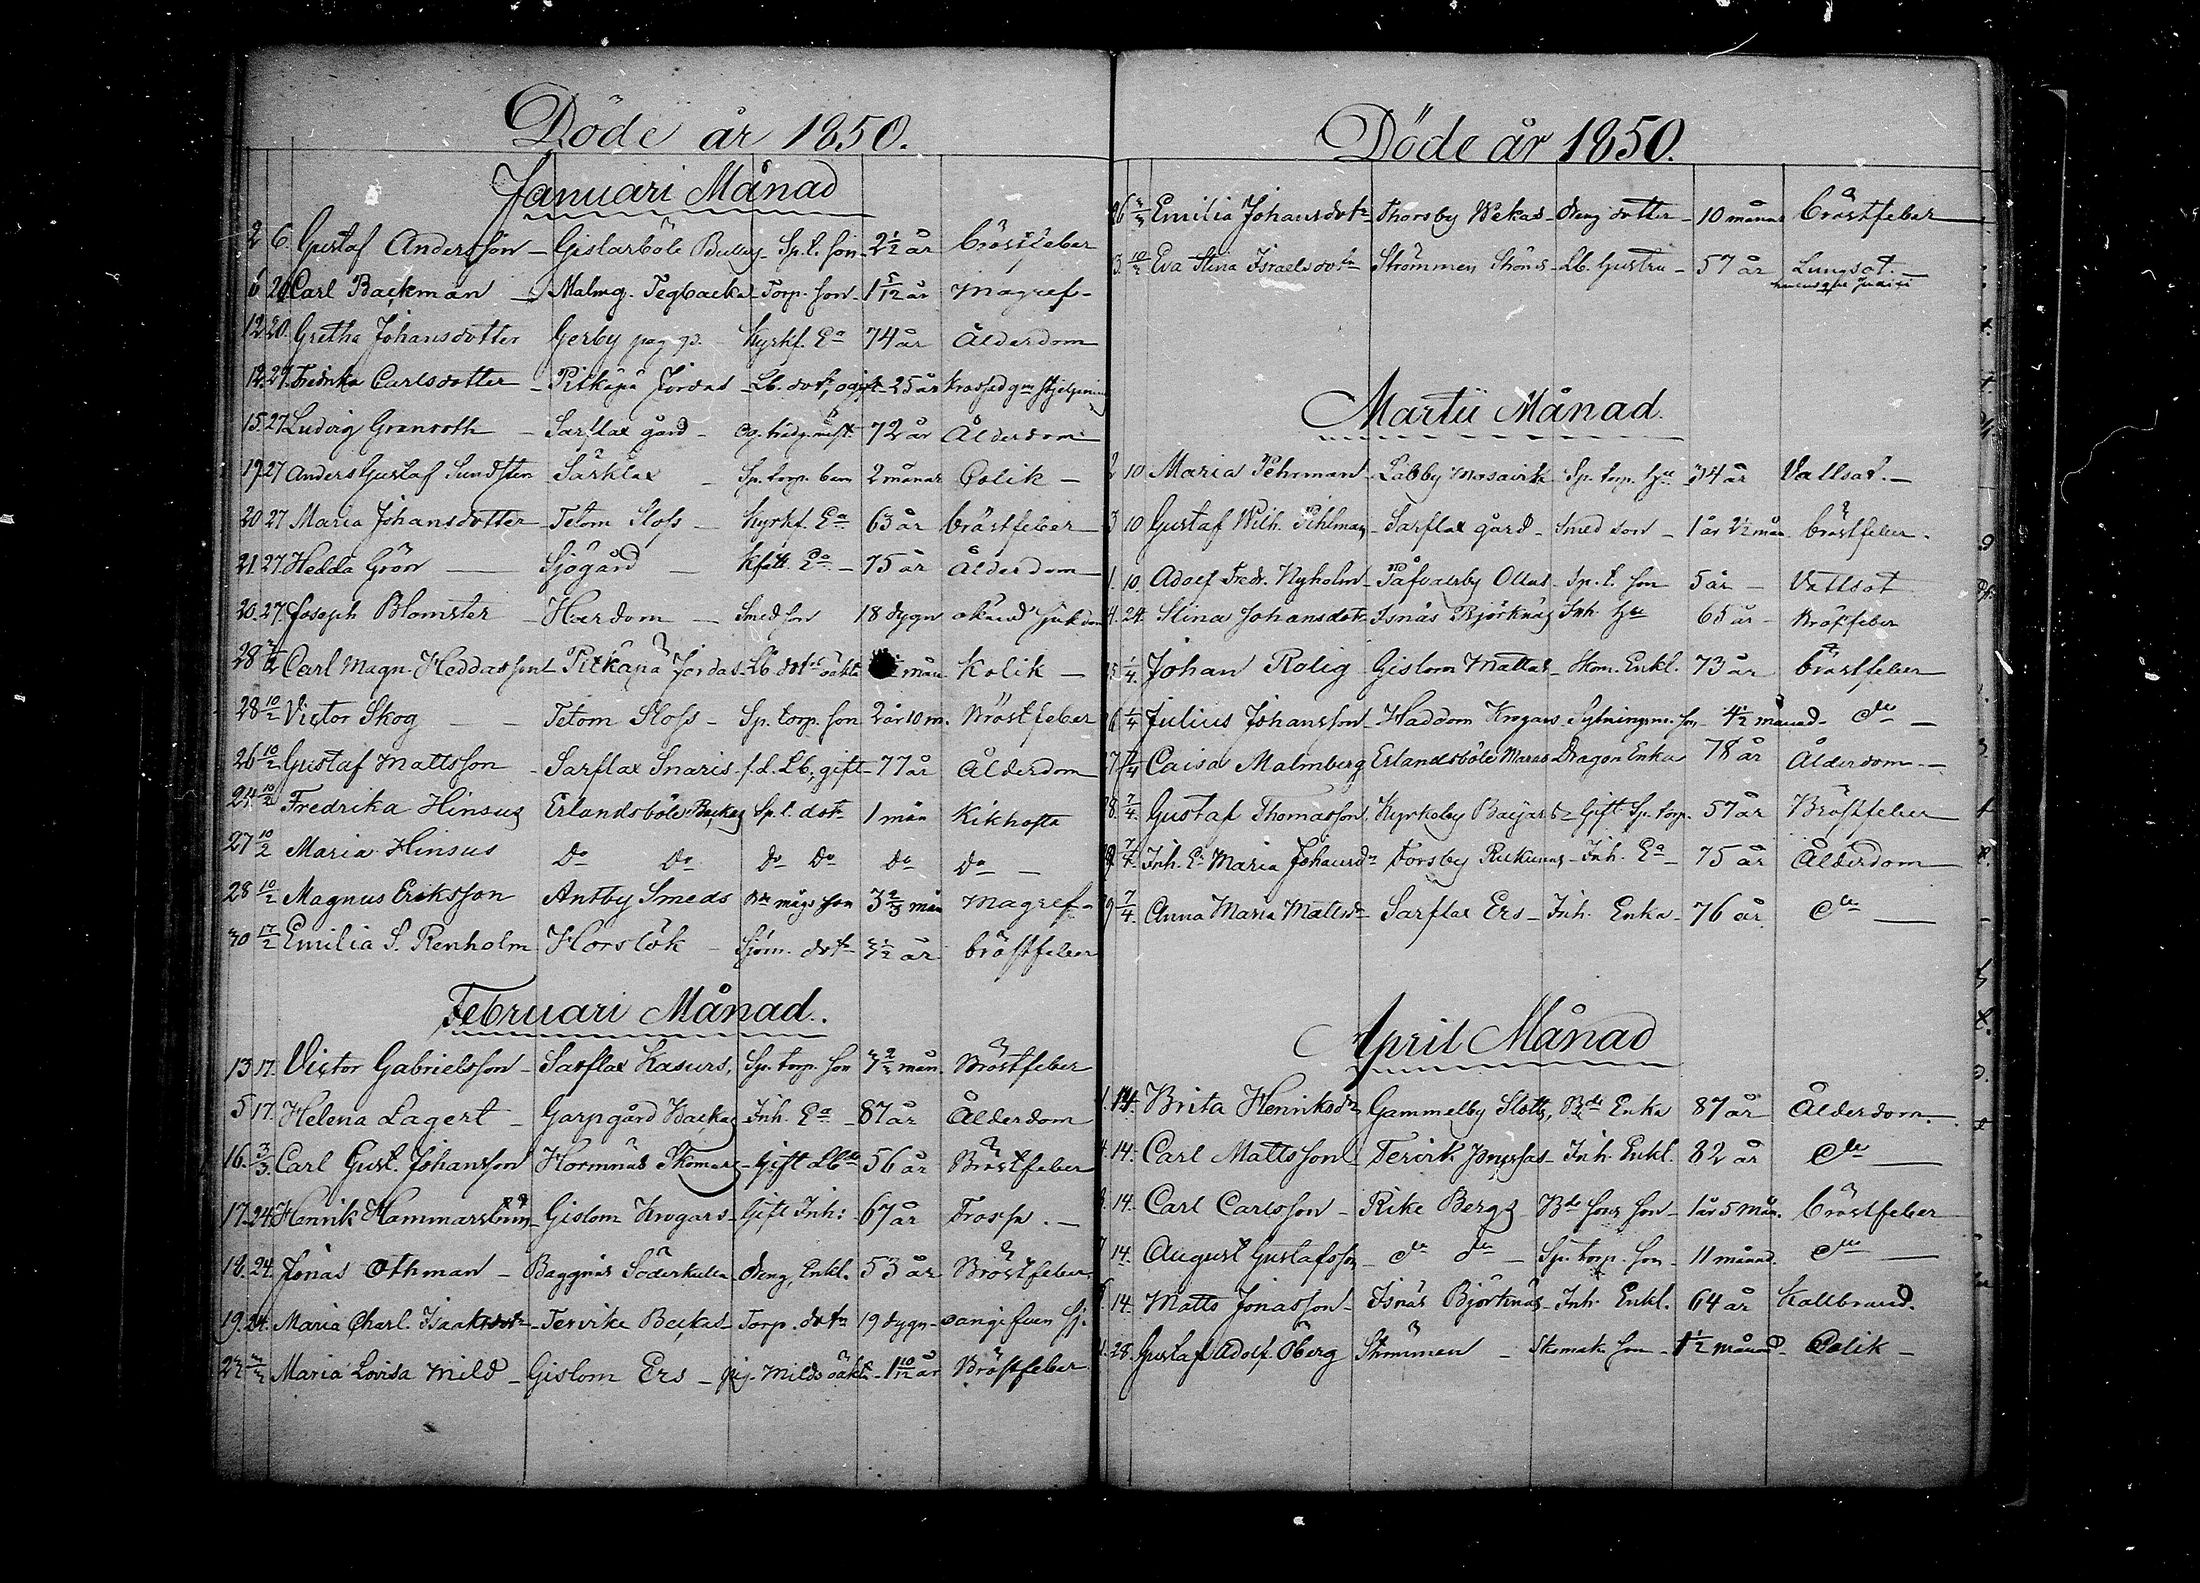 Döde år 1850.
Januari Månad
2 6. Gustaf Andersson – Gislarböle – Sp. t. son – 2 1/2 år bröstfeber
6 20 Carl Backman – Malmg. Tegbacka – Torp. son – 1 5/12 år Magref –
12 20. Gretha Johansdotter Gerby Kyrkf. Ea 74 år Ålderdom
12. 27. Fredrika Carlsdotter – Pitkäpä Jordas – Lb. dotr, ogift – 25 år krossad gm
15. 27 Ludvig Granroth – Sarflax gård – 72 år Ålderdom
19. 27 Anders Gustaf Sundsten Särklax – Sp. torp. barn 2 månar Colik –
20 27 Maria Johansdotter – Tetom Sloss – Kyrkf. Ea 63 år bröstfeber
21. 27 Hedda Grön – Sjögård – Ea – 75 år Ålderdom
20. 27. Joseph Blomster – Hardom – Smed son 18 dygn okänd sjukdom
28 Carl Magn. Heddasson – Pitkäpä Jordas – Lb. dotrs oäkta mån Kolik –
28 10/2 Victor Skog – Tetom Sloss – Sp. torp. son 2 år 10 m. Bröstfeber
26 10/2 Gustaf Mattsson – Sarflax Snaris – f. d. Lb, gift – 77 år Ålderdom
24. 10/2 Fredrika Hinsus Erlandsböle Backas Sp. t. dotr 1 mån Kikhosta
27 10/2 Maria Hinsus do do do do do do –
28 10/2 Magnus Eriksson Antby Smeds Bde mågs son 3 2/3 mån Magref –
30 17/2 Emilia S. Renholm Horslök – Sjöm. dotr 3 1/2 år bröstfeber
Februari Månad.
13. 17. Victor Gabrielsson – Sarflax Kasurs, Sp. torp. son mån. Bröstfeber
5 17. Helena Lagert – Garpgård Backas Inh. Ea – 87 år Ålderdom
16. 3/3. Carl Gust. Johansson Hormnäs Skomars – Gift Lbde 56 år Bröstfeber
17. 24. Henrik Hammarström – Gislom Krogars – Gift Inh: 67 år Frossa. –
18. 24. Jonas Othman – Baggnäs Söderkulla Dreng, Enkl. 53 år Bröstfeber
19. 24. Maria Charl. Isaaksdotr – Tervike Beckas – Torp. dotr 19 dygn – oangifven sj.
Maria Lovisa Mild – Gislom Ers – pig. Milds oäkta – 1 10/12 år Bröstfeber
Döde år 1850.
26 Emilia Johansdotr Thorsby Wekas – Dreng dotter – 10 månar bröstfeber
3. 10/3 Eva Stina Israelsdotr Strömmen Ströms – Lb. hustru – 57 år Lungsot. –
Martii Månad.
2 10 Maria Pehrman – Labby – Sp. torp. hu 34 år Vattsot. –
3 10 Gustaf Wilh. Pihlman – Sarflax gård – Smed son – 1 år 2 1/2 mån bröstfeber.
1. 10. Adolf Fredr. Nyholm – Påfvalsby Ollas – Sp. t. son 5 år – Vattsot
4. 24. Stina Johansdotr Isnäs Björknäs Inh. hu 65 år – Bröstfeber
1/4. Johan Rolig Gislom Mattas – Enkl. 73 år bröstfeber
6 1/4 Julius Johansson – Haddom Krogars – son – 4 1/2 månad – do –
7/4 Caisa Malmberg Erlandsböle Maras Dragon Enka 78 år Ålderdom. –
8. 7/4. Gustaf Thomasson, Kyrkoby Baijars – Gift Sp. torp. 57 år Bröstfeber
7/4. Inh. Ea Maria Johansdr Forsby Rukunas – Inh. Ea – 75 år Ålderdom
9 7/4. Anna Maria Mattsdr – Sarflax Ers – Inh. Enka – 76 år do –
April Månad
1. 14. Brita Henriksdr Gammelby Slotts, Bde Enka 87 år Ålderdom.
14. Carl Mattsson – Tervik – Inh. Enkl. 82 år do –
14. Carl Carlsson – Rike Bergs Bde sons son – 1 år 5 mån. bröstfeber
14. August Gustafsson – do do – Sp. torp. son – 11 månad. do –
14. Matts Jonasson – Isnäs Björknäs – Inh. Enkl. 64 år Kallbrand.
28. Gustaf Adolf Öberg Strömmen – Skomak. son – 1 1/2 månad – Colik –